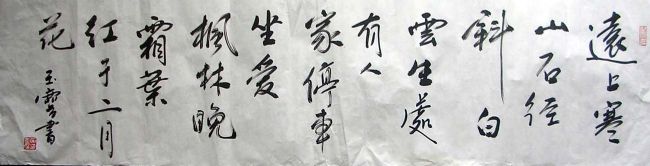 遠上寒
山石径
斜白
雲生處
有人
家停車
坐愛
楓林晚
霜葉
红于二月
花
玉書